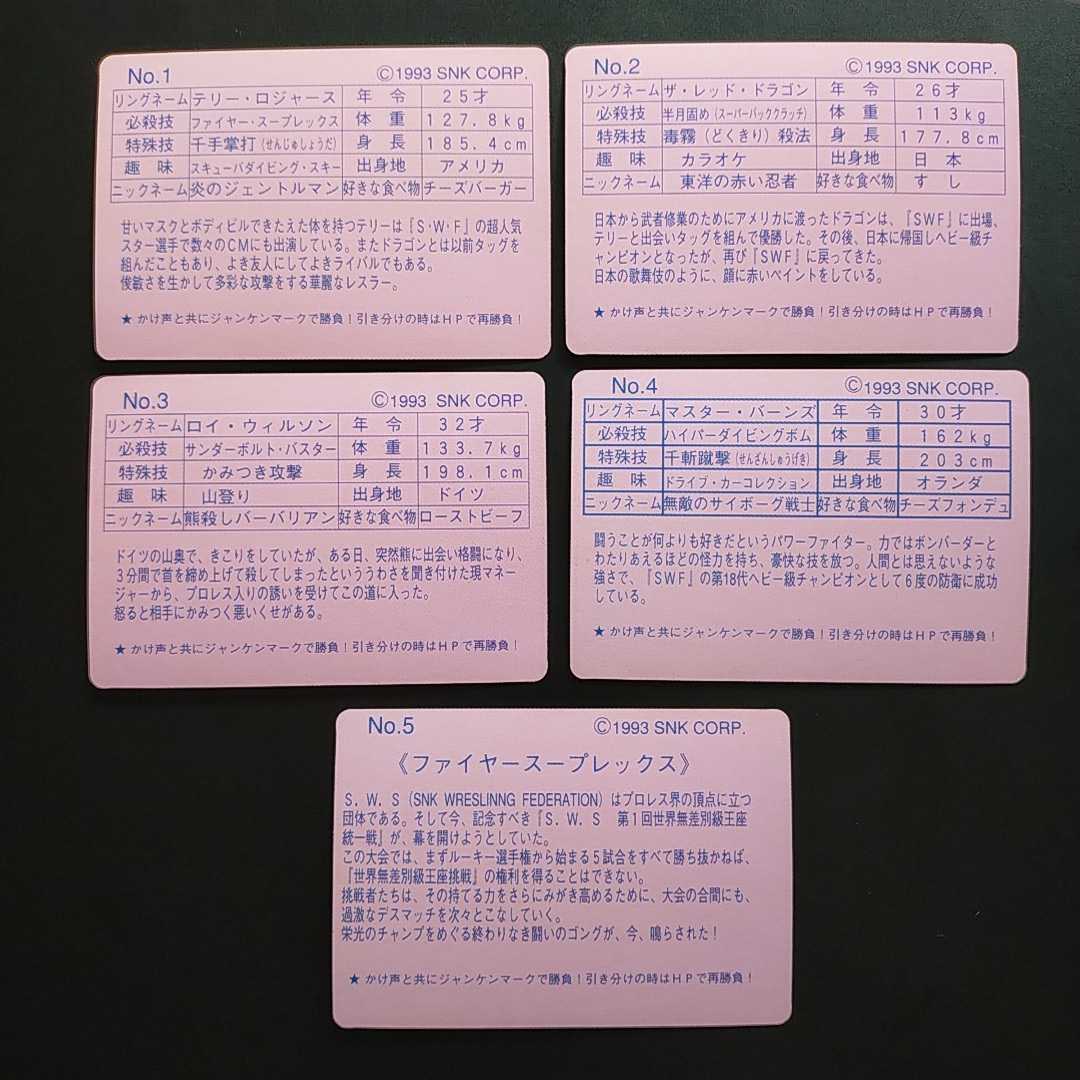 No.1 ©1993 SNK CORP.
リングネーム テリー・ロジャース 年 令 25才
必殺技 ファイヤー・スープレックス 体 重 127.8kg
特殊技 千手掌打(せんじゅしょうだ) 身 長 185.4cm
趣 味 スキューバダイビング・スキー 出身地 アメリカ
ニックネーム 炎のジェントルマン 好きな食べ物 チーズバーガー
甘いマスクとボディビルできたえた体を持つテリーは『S・W・F』の超人気
スター選手で数々のCMにも出演している。またドラゴンとは以前タッグを
組んだこともあり、よき友人にしてよきライバルでもある。
俊敏さを生かして多彩な攻撃をする華麗なレスラー。
★ かけ声と共にジャンケンマークで勝負!引き分けの時はHPで再勝負!
No.2 ©1993 SNK CORP.
リングネーム ザ・レッド・ドラゴン 年 令 26才
必殺技 半月固め(スーパーバッククラッチ) 体 重 113kg
特殊技 毒霧(どくきり)殺法 身 長 177.8cm
趣 味 カラオケ 出身地 日 本
ニックネーム 東洋の赤い忍者 好きな食べ物 す し
日本から武者修業のためにアメリカに渡ったドラゴンは、『SWF』に出場、
テリーと出会いタッグを組んで優勝した。その後、日本に帰国しヘビー級チャ
ンピオンとなったが、再び『SWF』に戻ってきた。
日本の歌舞伎のように、顔に赤いペイントをしている。
★ かけ声と共にジャンケンマークで勝負!引き分けの時はHPで再勝負!
No.3 ©1993 SNK CORP.
リングネーム ロイ・ウィルソン 年 令 32才
必殺技 サンダーボルト・バスター 体 重 133.7kg
特殊技 かみつき攻撃 身 長 198.1cm
趣 味 山登り 出身地 ドイツ
ニックネーム 熊殺しバーバリアン 好きな食べ物 ローストビーフ
ドイツの山奥で、きこりをしていたが、ある日、突然熊に出会い格闘になり、
3分間で首を締め上げて殺してしまったといううわさを聞き付けた現マネ
ージャーから、プロレス入りの誘いを受けてこの道に入った。
怒ると相手にかみつく悪いくせがある。
★ かけ声と共にジャンケンマークで勝負!引き分けの時はHPで再勝負!
No.4 ©1993 SNK CORP.
リングネーム マスター・バーンズ 年 令 30才
必殺技 ハイパーダイビングボム 体 重 162kg
特殊技 千斬蹴撃(せんざんしゅうげき) 身 長 203cm
趣 味 ドライブ・カーコレクション 出身地 オランダ
ニックネーム 無敵のサイボーグ戦士 好きな食べ物 チーズフォンデュ
闘うことが何よりも好きだというパワーファイター。力ではボンバーダーと
わたりあえるほどの怪力を持ち、豪快な技を放つ。人間とは思えないような
強さで、『SWF』の第18代ヘビー級チャンピオンとして6度の防衛に成功
している。
★ かけ声と共にジャンケンマークで勝負!引き分けの時はHPで再勝負!
No.5 ©1993 SNK CORP.
《ファイヤースープレックス》
S.W.S(SNK WRESLINNG FEDERATION)はプロレス界の頂点に立つ
団体である。そして今、記念すべき『S.W.S 第1回世界無差別級王座
統一戦』が、幕を開けようとしていた。
この大会では、まずルーキー選手権から始まる5試合をすべて勝ち抜かねば、
『世界無差別級王座挑戦』の権利を得ることはできない。
挑戦者たちは、その持てる力をさらにみがき高めるために、大会の合間にも、
過激なデスマッチを次々とこなしていく。
栄光のチャンプをめぐる終わりなき闘いのゴングが、今、鳴らされた!
★ かけ声と共にジャンケンマークで勝負!引き分けの時はHPで再勝負!